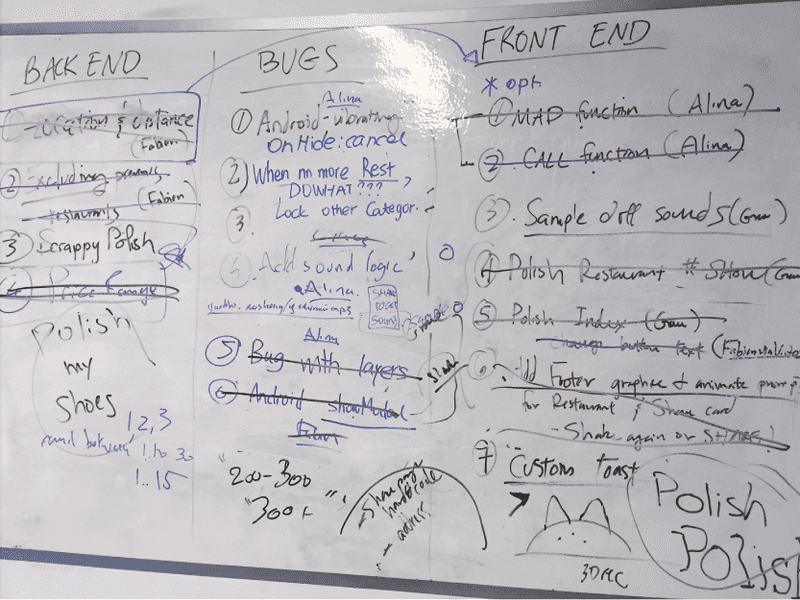 BACK END
1 Location & distance
(Fabien)
2) excluding previous
restaurants (Fabien)
3) Scrappy Polish
4 Price Range
Polish
my
shoes
1 2, 3
1 to 30
1..15
BUGS
Alina
1) Android-vibrating
OnHide: cancel
2) When no more Rest
DO WHAT???
3. Lock other Categor.
Add sound logic
Alina.
SHAKE
SOUND
Alina
5) Bug with layers
6) Android showModal
Fabien
"200-300
"300+"
Share
hardcode
address
FRONT END
* opt.
1) MAP function (Alina)
2. CALL function (Alina)
3. Sample off sounds
4 Polish Restaurant # Show
5 Polish Index
Change button text
6. Add Footer graphic & animate prompt
for Restaurant & Share card
- Shake again or SHARE!
7 Custom toast
Polish
Polish